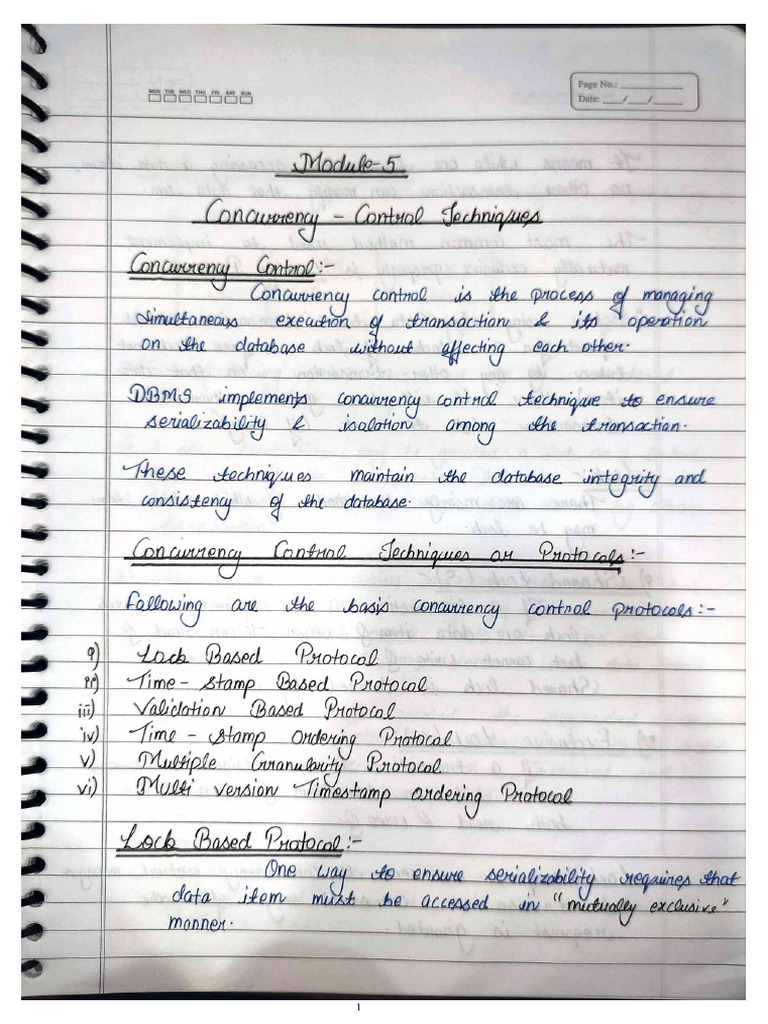 MON TUE WED THU FRI SAT SUN
Page No.:
Date:
Module-5
Concurrency - Control Techniques
Concurrency Control:-
Concurrency control is the process of managing
simultaneous execution of transaction & its operation
on the database without affecting each other.
DBMS implements concurrency control technique to ensure
serializability & isolation among the transaction.
These techniques maintain the database integrity and
consistency of the database.
Concurrency Control Techniques or Protocols:-
Following are the basis concurrency control protocols:-
i) Lock Based Protocol
ii) Time-Stamp Based Protocol
iii) Validation Based Protocol
iv) Time-Stamp Ordering Protocol
v) Multiple Granularity Protocol
vi) Multi version Timestamp ordering Protocol
Lock Based Protocol:-
One way to ensure serializability requires that
data item must be accessed in "mutually exclusive"
manner.
1